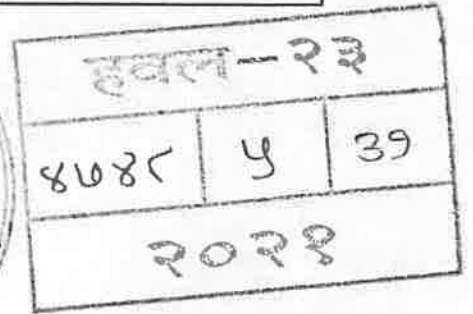 हवल-२३
४७४८ ५ ३१
२०२१